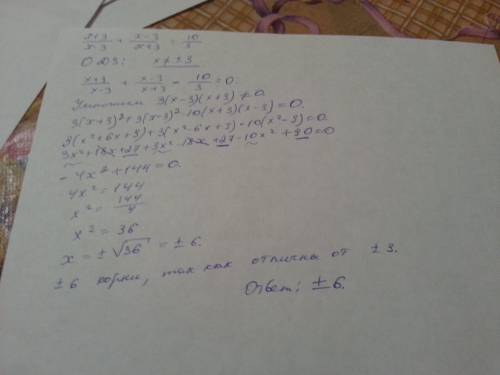 x+3/x-3 + x-3/x+3 = 10/3
ОДЗ: x≠±3
x+3/x-3 + x-3/x+3 - 10/3 = 0.
Умножим 3(x-3)(x+3)≠0.
3(x+3)²+3(x-3)²-10(x+3)(x-3)=0.
3(x²+6x+9)+3(x²-6x+9)-10(x²-9)=0.
3x²+18x+27+3x²-18x+27-10x²+90=0
-4x²+144=0.
4x²=144
x²=144/4
x²=36
x=±√36=±6.
±6 корни, так как отличны от ±3.
Ответ: ±6.